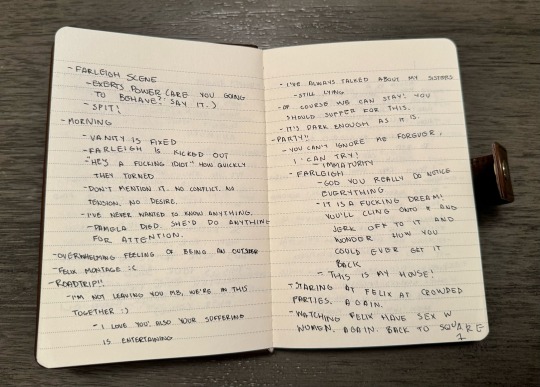 - FARLEIGH SCENE
- EXERTS POWER (ARE YOU GOING
TO BEHAVE?: SAY IT.)
- SPIT!
- MORNING
- VANITY IS FIXED
- FARLEIGH IS KICKED OUT
- "HE'S A FUCKING IDIOT" HOW QUICKLY
THEY TURNED
- DON'T MENTION IT. NO CONFLICT. NO
TENSION. NO DESIRE.
- I'VE NEVER WANTED TO KNOW ANYTHING.
- PAMELA DIED. SHE'D DO ANYTHING
FOR ATTENTION.
- OVERWHELMING FEELING OF BEING AN OUTSIDER
- FELIX MONTAGE :C
- ROADTRIP!!
- I'M NOT LEAVING YOU M8, WE'RE IN THIS
TOGETHER :)
- I LOVE YOU. ALSO YOUR SUFFERING
IS ENTERTAINING
- I'VE ALWAYS TALKED ABOUT MY SISTERS
- STILL LYING
- OF COURSE WE CAN STAY! YOU
SHOULD SUFFER FOR THIS.
- IT'S DARK ENOUGH AS IT IS.
- PARTY!!
- YOU CAN'T IGNORE ME FOREVER,
I CAN TRY!
- IMMATURITY
- FARLEIGH
- GOD YOU REALLY DO NOTICE
EVERYTHING
- IT IS A FUCKING DREAM!
YOU'LL CLING ONTO IT AND
JERK OFF TO IT AND
WONDER HOW YOU
COULD EVER GET IT
BACK
- THIS IS MY HOUSE!
- STARING AT FELIX AT CROWDED
PARTIES. AGAIN.
- WATCHING FELIX HAVE SEX W
WOMEN. AGAIN. BACK TO SQUARE
1